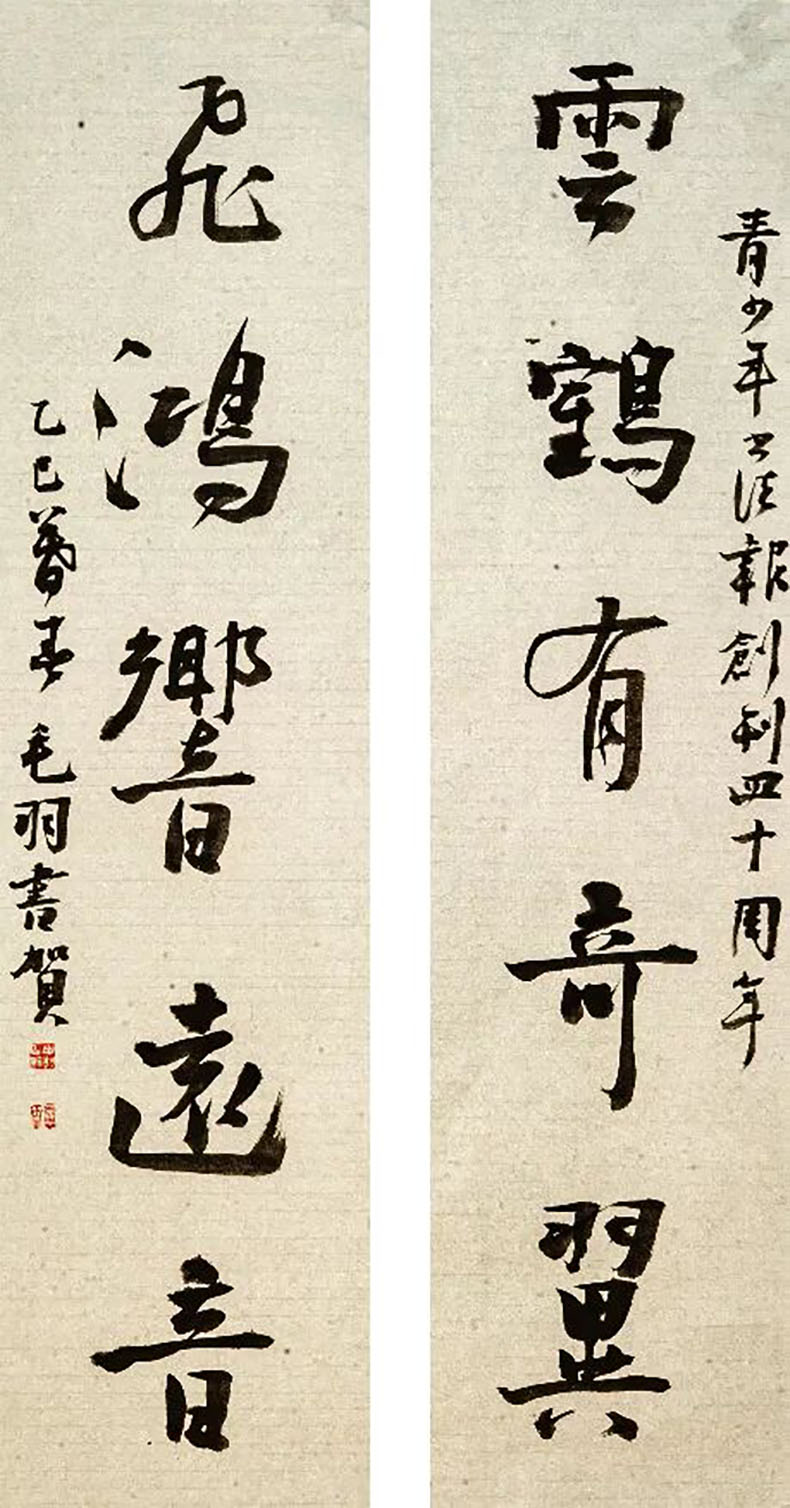 青少年书法報創刊四十周年
雲鶴有奇翼
飛鴻響遠音
乙巳暮春毛羽書賀